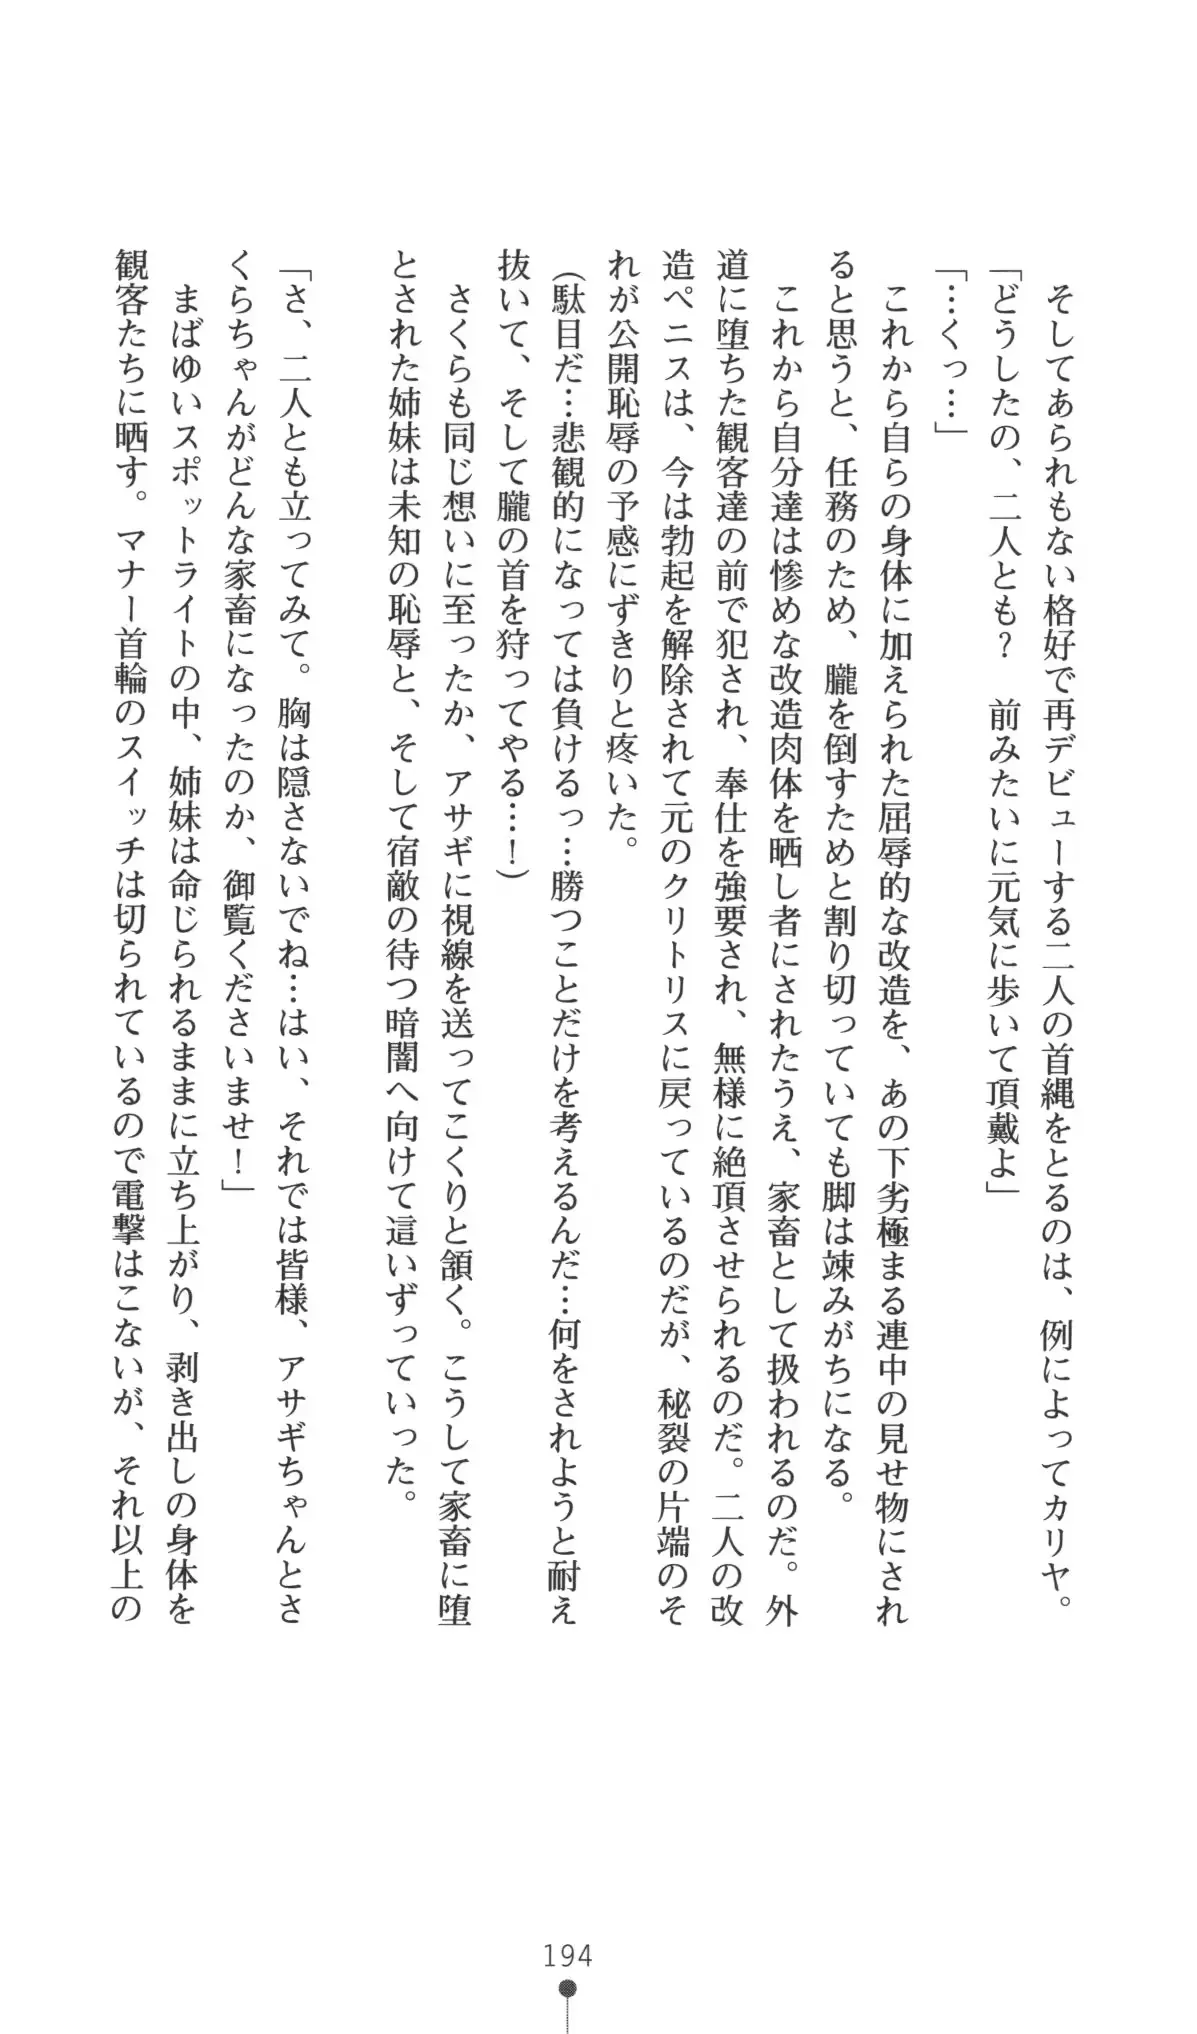 そしてあられもない格好で再デビューする二人の首縄をとるのは、例によってカリヤ。
「どうしたの、二人とも？　前みたいに元気に歩いて頂戴よ」
「…くっ…」
　これから自らの身体に加えられた屈辱的な改造を、あの下劣極まる連中の見せ物にされ
ると思うと、任務のため、朧を倒すためと割り切っていても脚は竦みがちになる。
　これから自分達は惨めな改造肉体を晒し者にされたうえ、家畜として扱われるのだ。外
道に堕ちた観客達の前で犯され、奉仕を強要され、無様に絶頂させられるのだ。二人の改
造ペニスは、今は勃起を解除されて元のクリトリスに戻っているのだが、秘裂の片端のそ
れが公開恥辱の予感にずきりと疼いた。
（駄目だ…悲観的になっては負けるっ…勝つことだけを考えるんだ…何をされようと耐え
抜いて、そして朧の首を狩ってやる…！）
　さくらも同じ想いに至ったか、アサギに視線を送ってこくりと頷く。こうして家畜に堕
とされた姉妹は未知の恥辱と、そして宿敵の待つ暗闇へ向けて這いずっていった。
「さ、二人とも立ってみて。胸は隠さないでね…はい、それでは皆様、アサギちゃんとさ
くらちゃんがどんな家畜になったのか、御覧くださいませ！」
　まばゆいスポットライトの中、姉妹は命じられるままに立ち上がり、剥き出しの身体を
観客たちに晒す。マナー首輪のスイッチは切られているので電撃はこないが、それ以上の
194